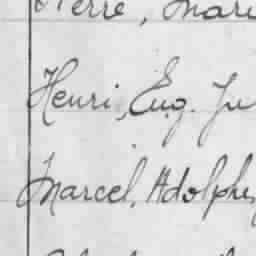 Pierre, Mari
Henri, Eug. Ju
Marcel, Adolphe,